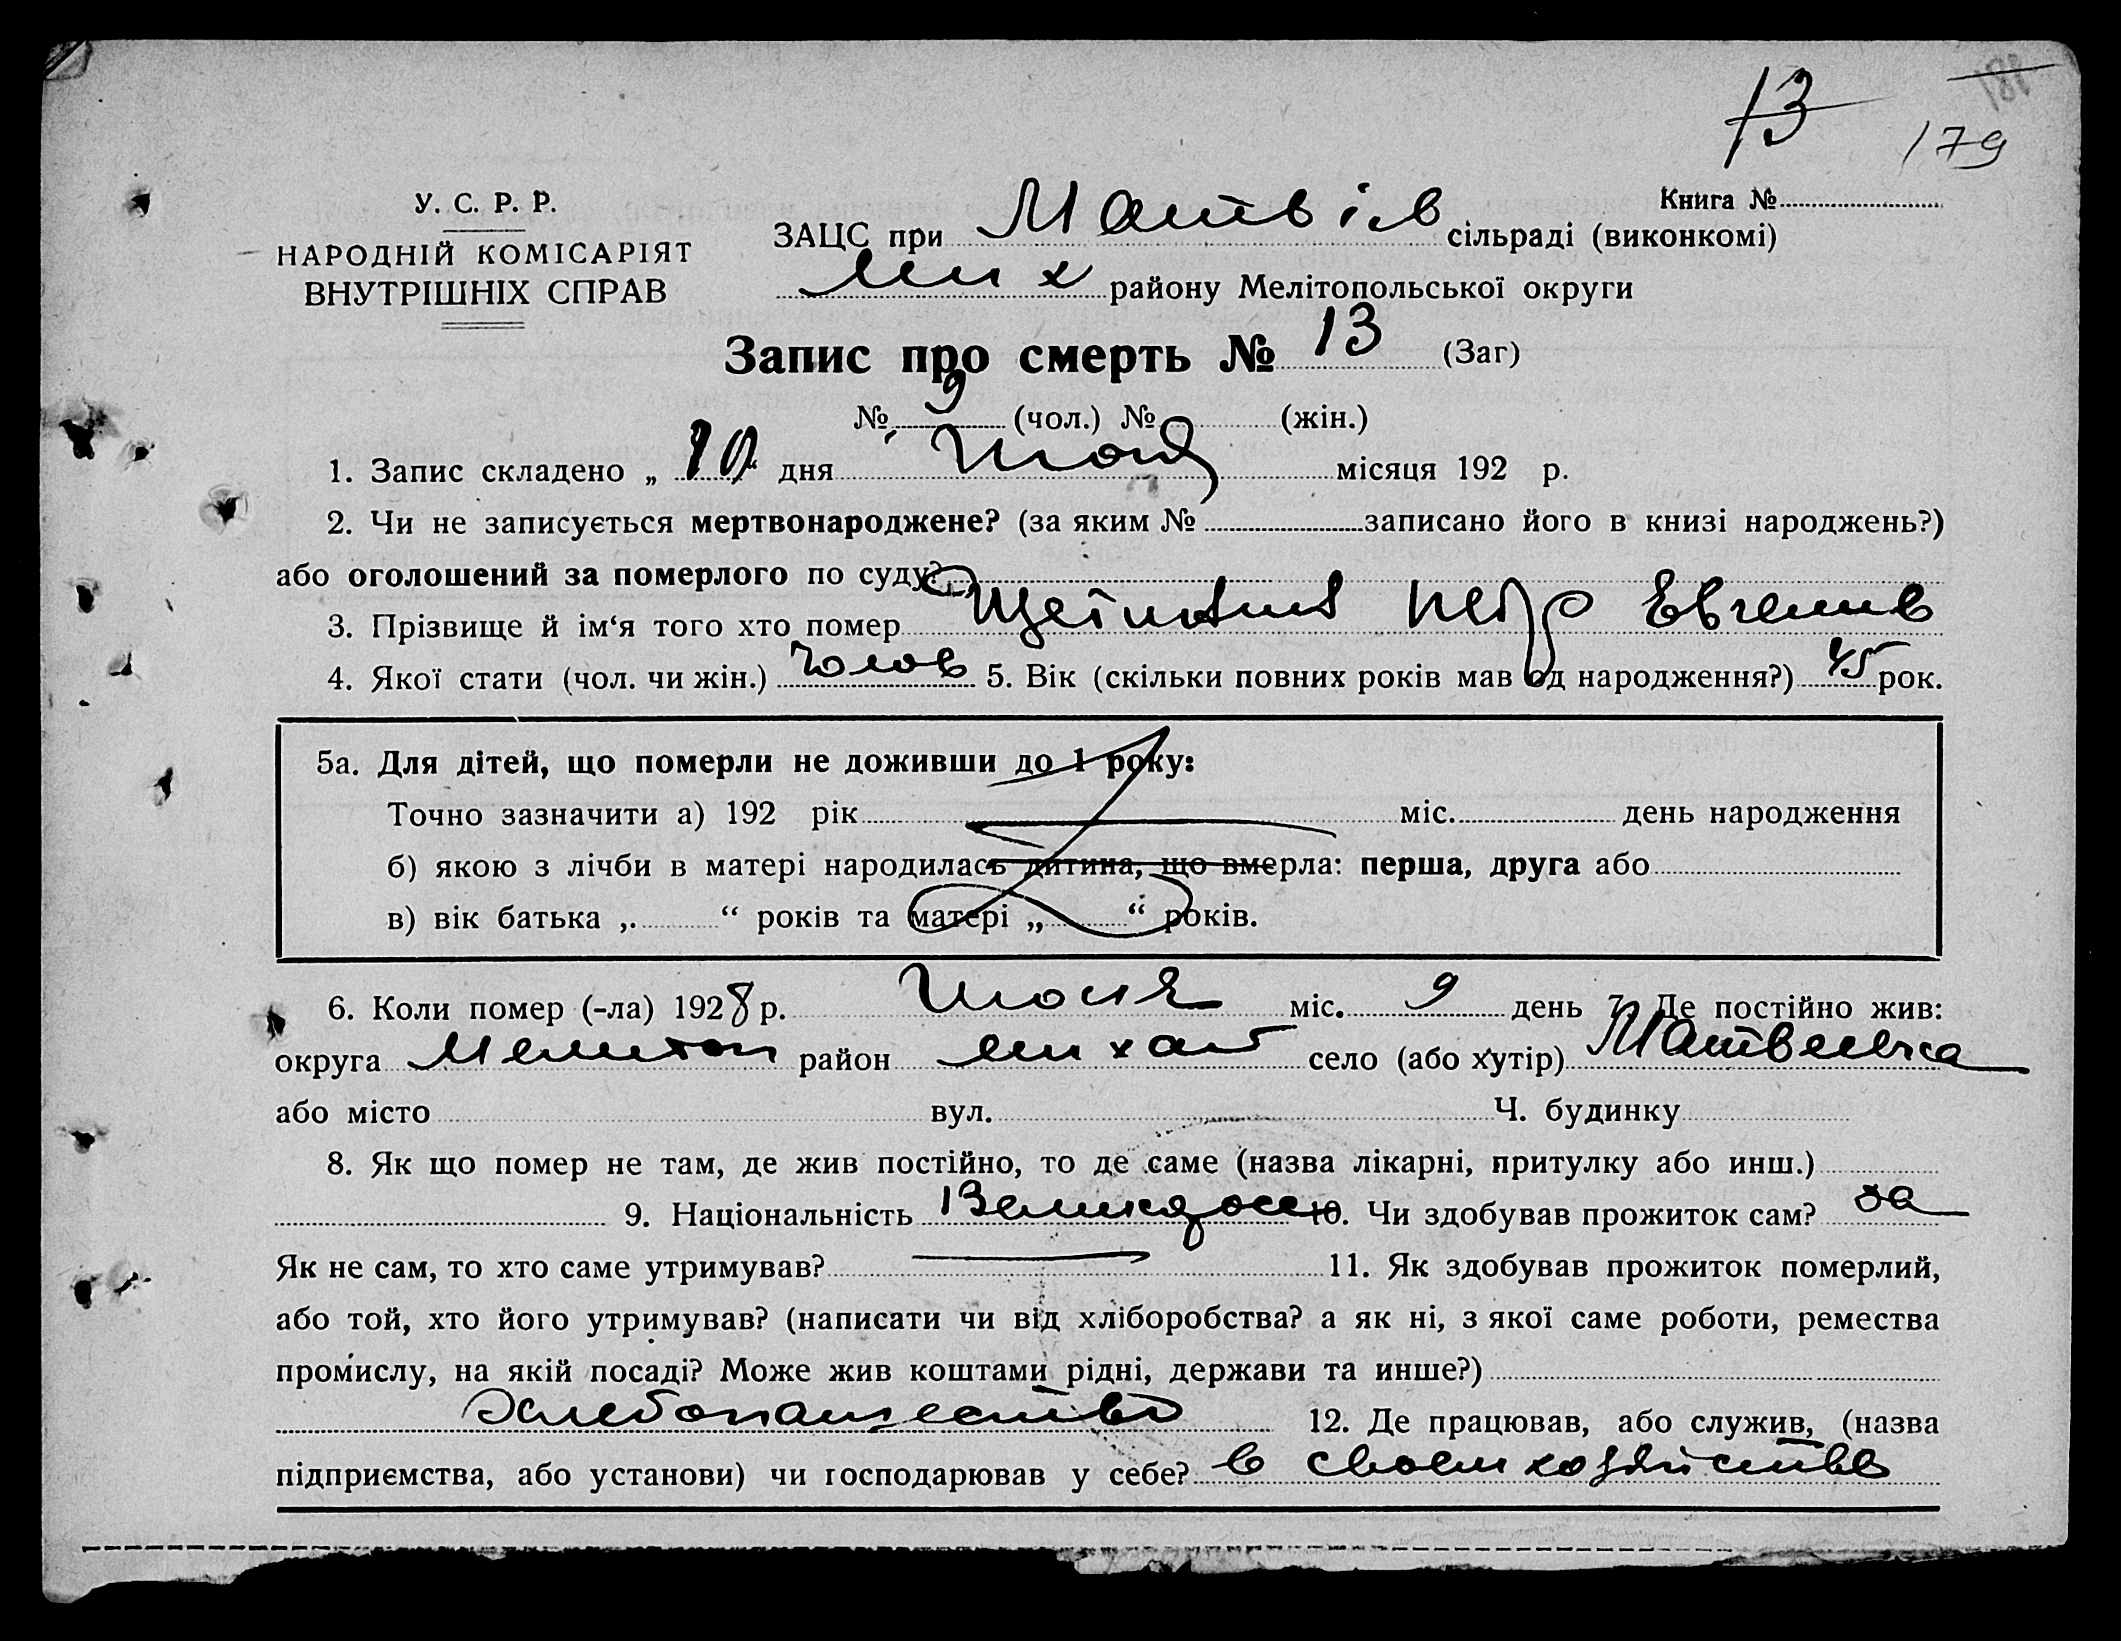 13
179
У. С. Р. Р.
НАРОДНІЙ КОМІСАРІЯТ
ВНУТРІШНІХ СПРАВ
Книга №
ЗАЦС при Матвіїв сільраді (виконкомі)
Мих району Мелітопольської округи
Запис про смерть № 13 (Заг)
№ 9 (чол.) № (жін.)
1. Запис складено „ 10 “ дня Июня місяця 192 р.
2. Чи не записується мертвонароджене? (за яким № записано його в книзі народжень?)
або оголошений за померлого по суду?
3. Прізвище й ім‘я того хто помер Петр Евгенив
4. Якої стати (чол. чи жін.) Чолов 5. Вік (скільки повних років мав од народження?) 45 рок.
5а. Для дітей, що померли не доживши до 1 року:
Точно зазначити а) 192 рік міс. день народження
б) якою з лічби в матері народилась дитина, що вмерла: перша, друга або
в) вік батька „ “ років та матері „ “ років.
6. Коли помер (-ла) 1928 р. Июня міс. 9 день 7. Де постійно жив:
округа Мелитоп район Михай село (або хутір) Матвеевка
або місто вул. Ч. будинку
8. Як що помер не там, де жив постійно, то де саме (назва лікарні, притулку або инш.)
9. Національність Великоросс 10. Чи здобував прожиток сам? да
Як не сам, то хто саме утримував? 11. Як здобував прожиток померлий,
або той, хто його утримував? (написати чи від хліборобства? а як ні, з якої саме роботи, ремества
промислу, на якій посаді? Може жив коштами рідні, держави та инше?)
Хлебопашество 12. Де працював, або служив, (назва
підприємства, або установи) чи господарював у себе? в своем хозяйстве